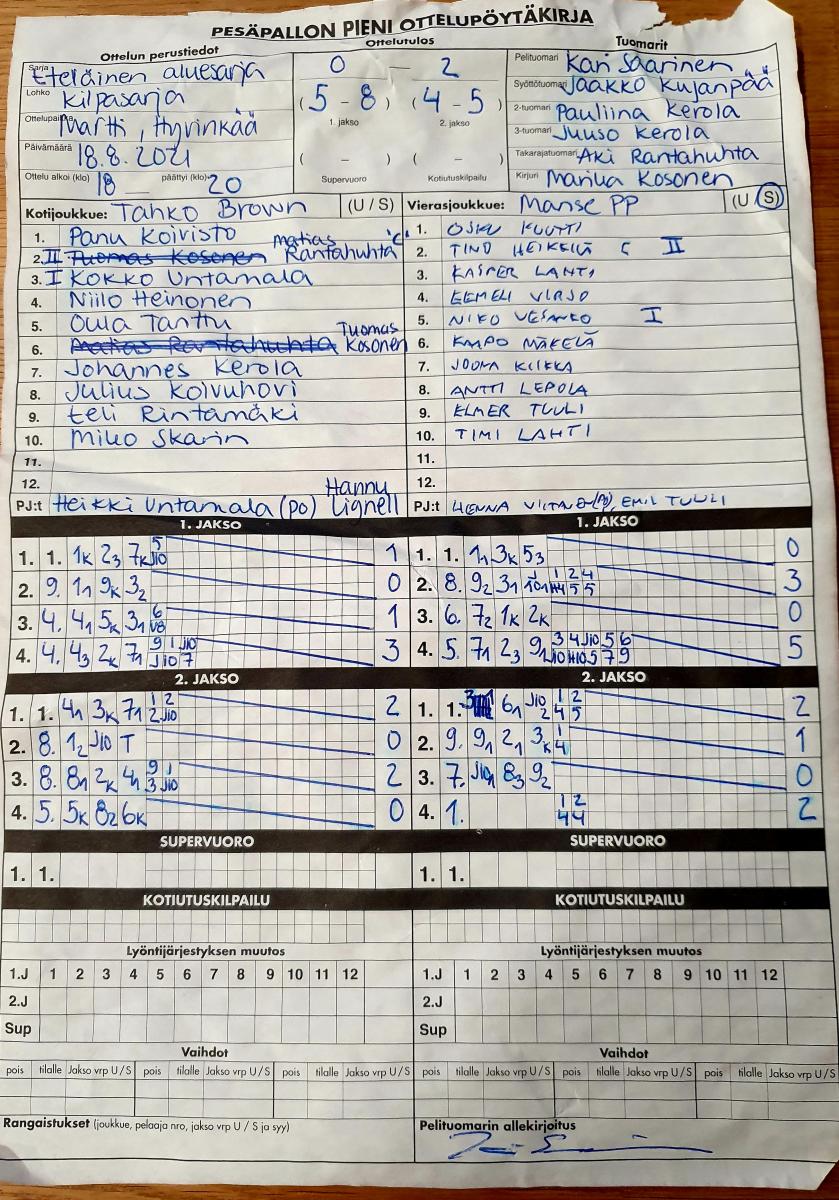 PESÄPALLON PIENI OTTELUPÖYTÄKIRJA
Ottelun perustiedot
Ottelutulos
Tuomarit
Sarja Eteläinen aluesarja
Lohko Kilpasarja
Ottelupaikka Martti, Hyvinkää
Päivämäärä 18.8.2021
Ottelu alkoi (klo) 18 päättyi (klo) 20
0 – 2
(5 – 8) (4 – 5)
1. jakso 2. jakso
( – ) ( – )
Supervuoro Kotiutuskilpailu
Pelituomari Kari Saarinen
Syöttötuomari Jaakko Kujanpää
2-tuomari Pauliina Kerola
3-tuomari Juuso Kerola
Takarajatuomari Aki Rantahuhta
Kirjuri Mariua Kosonen
Kotijoukkue: Tahko Brown (U / S)
1. Panu Koivisto
2. II Tuomas Kosonen Matias Rantahuhta "C"
3. I Kokko Untamala
4. Niilo Heinonen
5. Oula Tanttu
6. Matias Rantahuhta Tuomas Kosonen
7. Johannes Kerola
8. Julius Koivuhovi
9. Eeli Rintamäki
10. Miko Skarin
11.
12.
PJ:t Heikki Untamala (PO) Hannu Lignell
Vierasjoukkue: Manse PP (U / S)
1. OSKU KUUTTI
2. TINO HEIKKILÄ C II
3. KASPER LAHTI
4. EEMELI VIRJO
5. NIKO VESANKO I
6. KAAPO MÄKELÄ
7. JOONA KILKKA
8. ANTTI LEPOLA
9. ELMER TUULI
10. TIMI LAHTI
11.
12.
PJ:t HENNA (PO), EMIL TUULI
1. JAKSO
1. 1. 1K 23 7K 5 J10 1
2. 9. 11 9K 32 0
3. 4. 41 5K 31 6 V8 1
4. 4. 43 2K 71 9 1 J10 J10 7 3
1. JAKSO
1. 1. 11 3K 53 0
2. 8. 92 31 1 2 4 4 5 5 3
3. 6. 72 1K 2K 0
4. 5. 71 23 91 3 4 J10 5 6 J10 H10 5 7 9 5
2. JAKSO
1. 1. 41 3K 71 1 2 2 J10 2
2. 8. 12 J10 T 0
3. 8. 81 2K 41 9 1 3 J10 2
4. 5. 5K 82 6K 0
2. JAKSO
1. 1. 61 J10 2 1 2 4 5 2
2. 9. 91 21 3K 1 4 1
3. 7. J10 83 92 0
4. 1. 1 2 4 4 2
SUPERVUORO
1. 1.
SUPERVUORO
1. 1.
KOTIUTUSKILPAILU
KOTIUTUSKILPAILU
Lyöntijärjestyksen muutos
1.J 1 2 3 4 5 6 7 8 9 10 11 12
2.J
Sup
Lyöntijärjestyksen muutos
1.J 1 2 3 4 5 6 7 8 9 10 11 12
2.J
Sup
Vaihdot
pois tilalle Jakso vrp U / S pois tilalle Jakso vrp U / S pois tilalle Jakso vrp U / S
Vaihdot
pois tilalle Jakso vrp U / S pois tilalle Jakso vrp U / S pois tilalle Jakso vrp U / S
Rangaistukset (joukkue, pelaaja nro, jakso vrp U / S ja syy)
Pelituomarin allekirjoitus